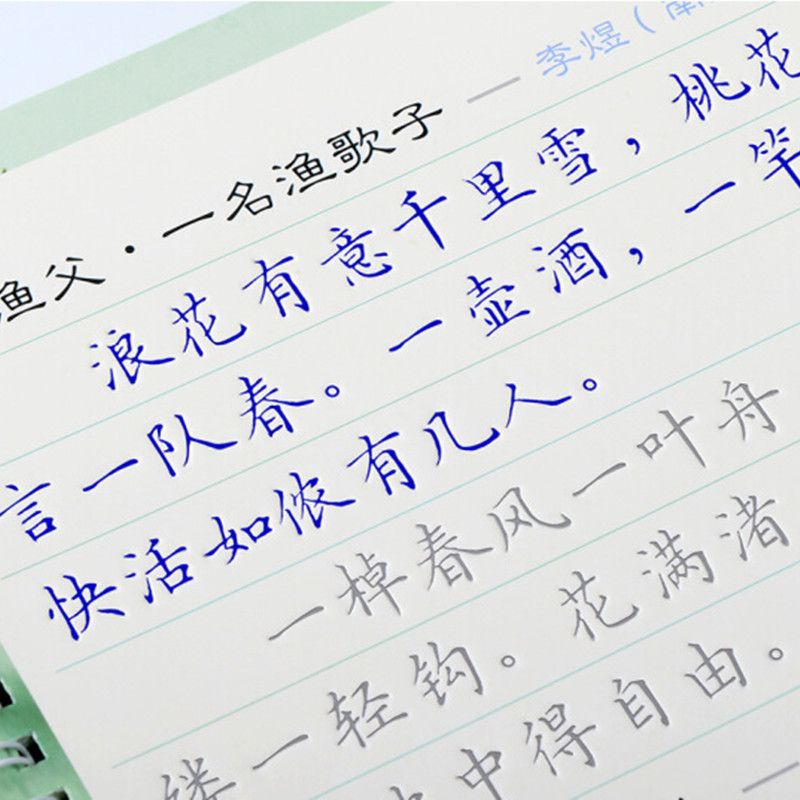 渔父·一名渔歌子 — 李煜（南
浪花有意千里雪，桃花
言一队春。一壶酒，一竿
快活如侬有几人。
一棹春风一叶舟
缕一轻钩。花满渚
中得自由。